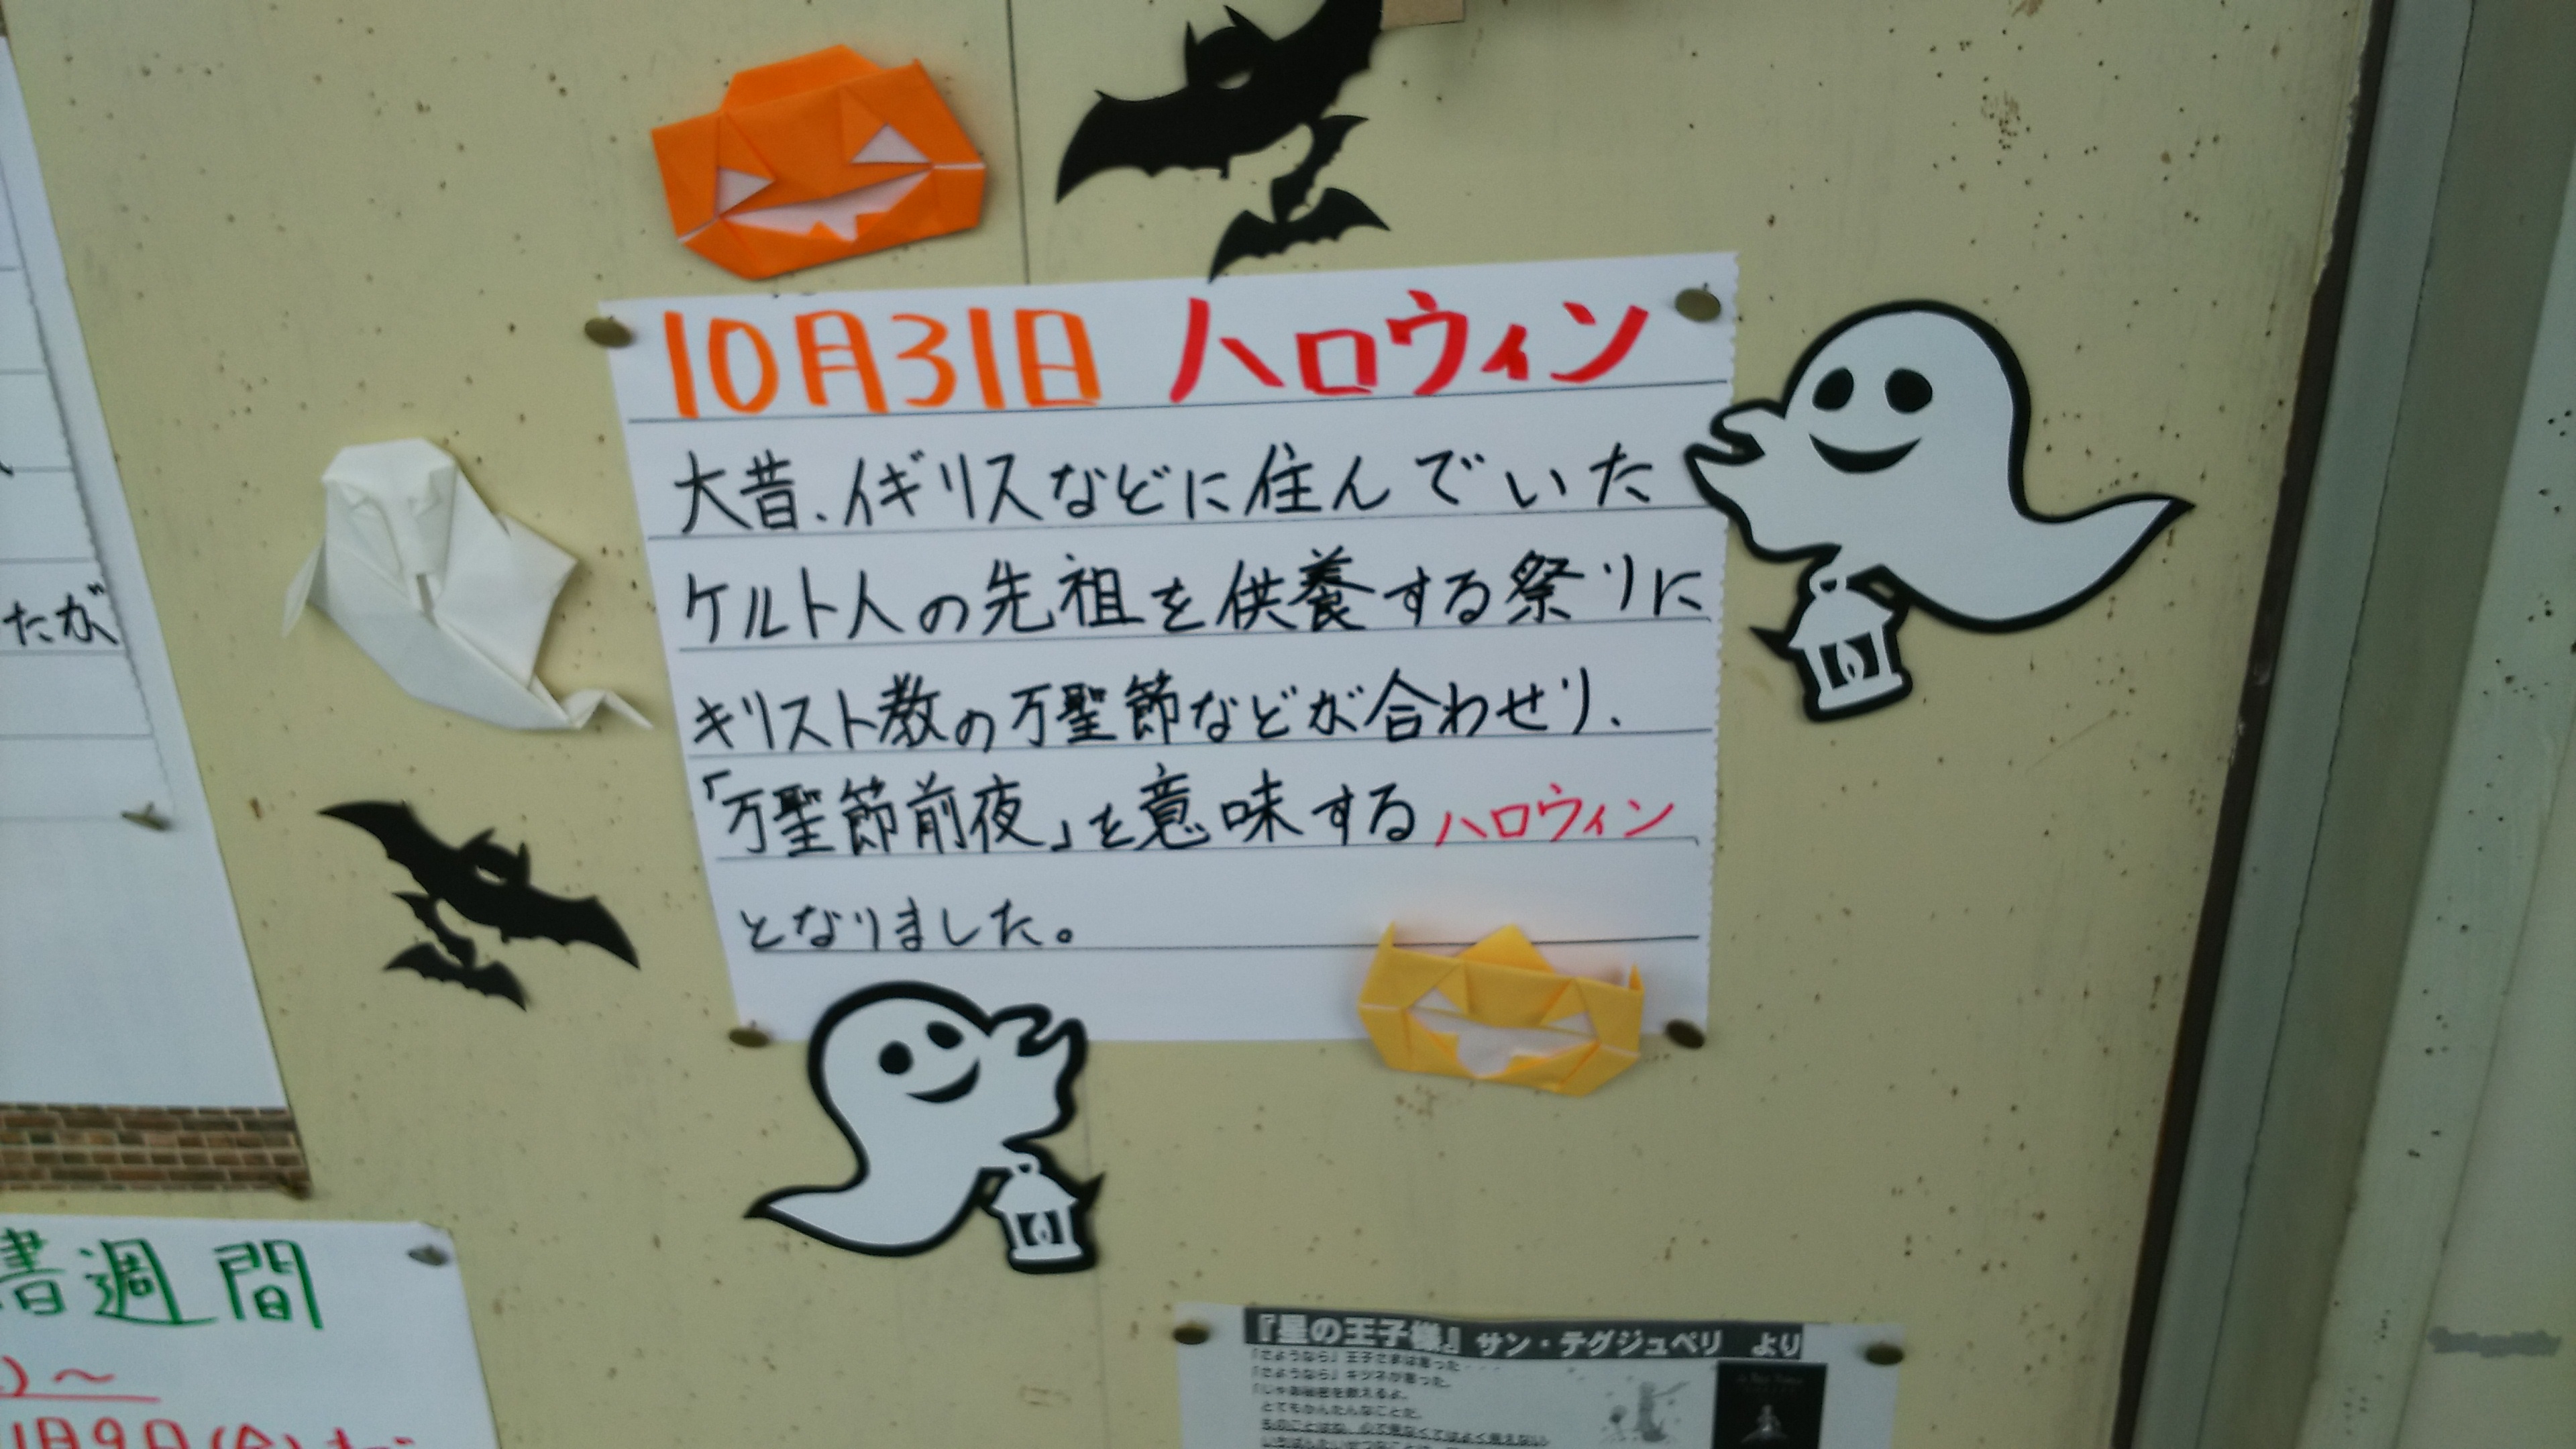 10月31日 ハロウィン
大昔、イギリスなどに住んでいた
ケルト人の先祖を供養する祭りに
キリスト教の万聖節などが合わせり、
「万聖節前夜」を意味するハロウィン
となりました。
たが
書週間
)～
1月9日(金)まで
『星の王子様』サン・テグジュペリ より
「さようなら」王子さまは言った・・・
「さようなら」キツネが言った。
「じゃあ秘密を教えるよ。
とてもかんたんなことだ。
ものごとはね、心で見なくてはよく見えない。